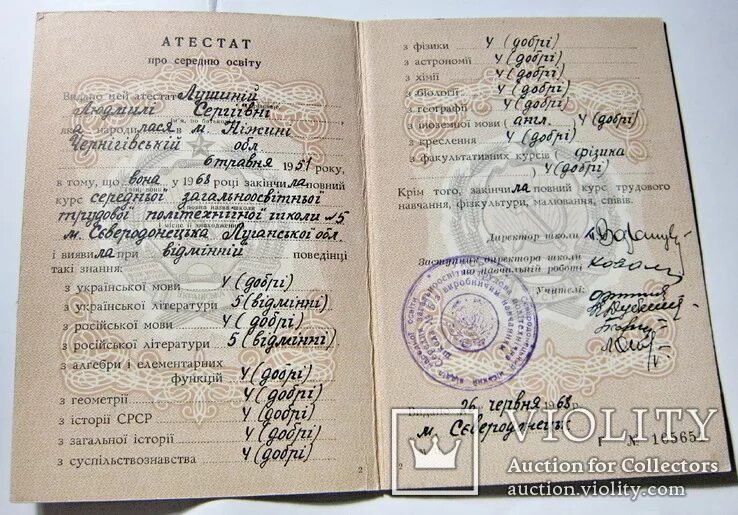 АТЕСТАТ
про середню освіту
Видано цей атестат Лушиній
Людмилі Сергіївні
яка народилася в м. Ніжині
Чернігівській обл.
6 травня 1951 року,
в тому, що вона у 1968 році закінчила повний
курс середньої загальноосвітньої
трудової політехнічної школи №5
м. Сєверодонецька Луганської обл.
і виявила при відмінній поведінці
такі знання:
з української мови 4 (добрі)
з української літератури 5 (відмінні)
з російської мови 4 (добрі)
з російської літератури 5 (відмінні)
з алгебри і елементарних
функцій 4 (добрі)
з геометрії 4 (добрі)
з історії СРСР 4 (добрі)
з загальної історії 4 (добрі)
з суспільствознавства 4 (добрі)
2
з фізики 4 (добрі)
з астрономії 4 (добрі)
з хімії 4 (добрі)
з біології 4 (добрі)
з географії 4 (добрі)
з іноземної мови (англ. 4 (добрі)
з креслення 4 (добрі)
з факультативних курсів (фізика
) 4 (добрі)
Крім того, закінчила повний курс трудового
навчання, фізкультури, малювання, співів.
Директор школи
Заступник директора школи
по навчальній роботі
Учителі:
Видано 26 червня 1968 р.
м. Сєверодонецьк
Г № 16565
2
VIOLITY
Auction for Collectors
auction.violity.com